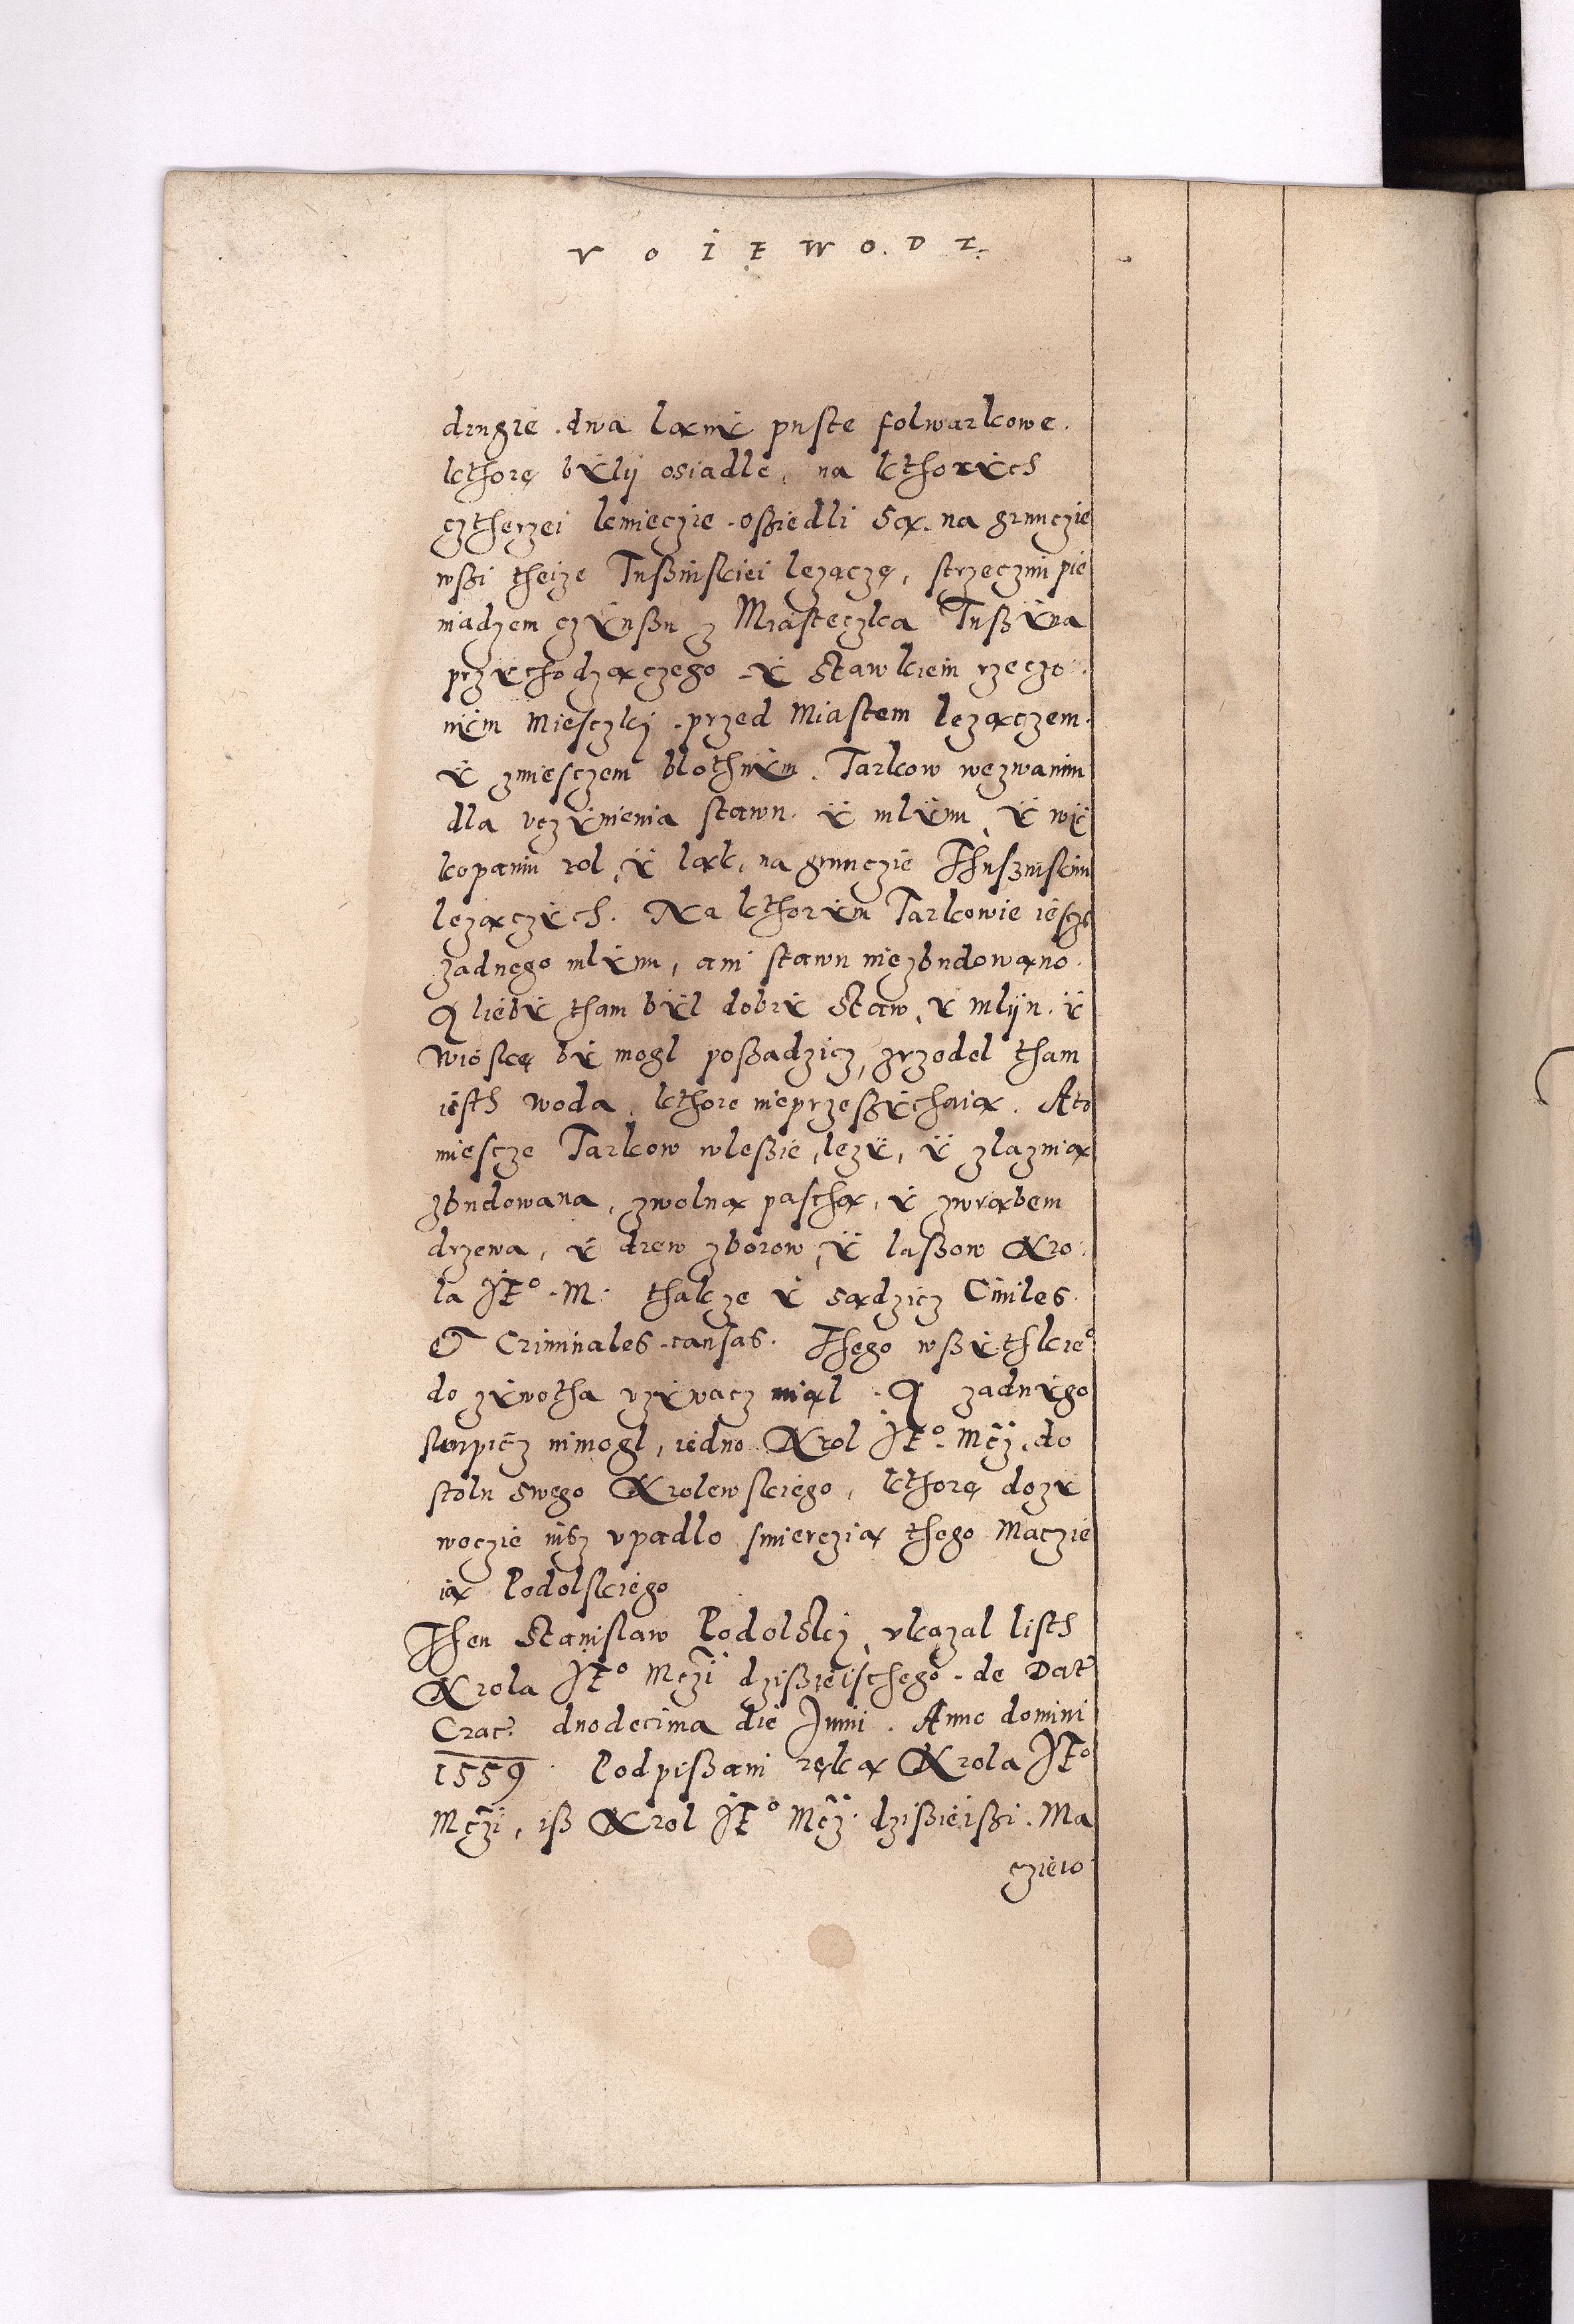 VOIEWODZ.
drugie dwa lanÿ puste folwarkowe.
kthorę bÿlÿ osiadle, na kthorÿch
cztherzei kmieczie osßiedli są. na grunczie
wßi theize Tußinskiei lezączę, strzeczmi pie
niadzem czÿnßu z Miasteczka Tußÿna
przÿchodzączego ÿ Stawkiem rzeczo
nÿm Miesczkj przed Miastem lezączem.
ÿ zmiesczem blothnÿm. Tarkow wezwanim
dla vczÿnienia stawu. ÿ mlÿnu, ÿ wÿ
kopaniu rol, ÿ ląk, na grunczie Thußinskim
lezączÿch. Na kthorÿm Tarkowie iescze
zadnego mlÿnu, ani stawu niezbudowano.
A liebÿ tham bÿl dobrÿ Staw, ÿ mlÿn. ÿ
Wioskę bÿ mogl poßadzicz, zrzodel tham
iesth woda, kthore nieprzeßÿchaią. Ato
miescze Tarkow wleßie, lezÿ, ÿ zlaznią
zbudowana, zwolną paschą, ÿ zwrąbem
drzewa, ÿ drew zborow, ÿ laßow Kro
la JE° M. thakze ÿ sądzicz Ciuiles
et Criminales causas. Thego wßÿthkie°
do zÿwotha vzÿwacz mial. A zadnÿgo
skupicz nimogl, iedno Krol JE° Mczÿ, do
stolu swego Krolewskiego, kthorę dozÿ
woczie iusz vpadlo smierczią thego Maczie
ia Podolskiego
Then Stanislaw Podolskj, vkazal listh
Krola JE° Mczÿ dzißieischego de Dat
Crac: duodecima die Junii. Anno domini
1559. Podpißani ręką Krola JE°
Mczÿ, iß Krol JE° Mczÿ dzißieißi. Ma
czieio